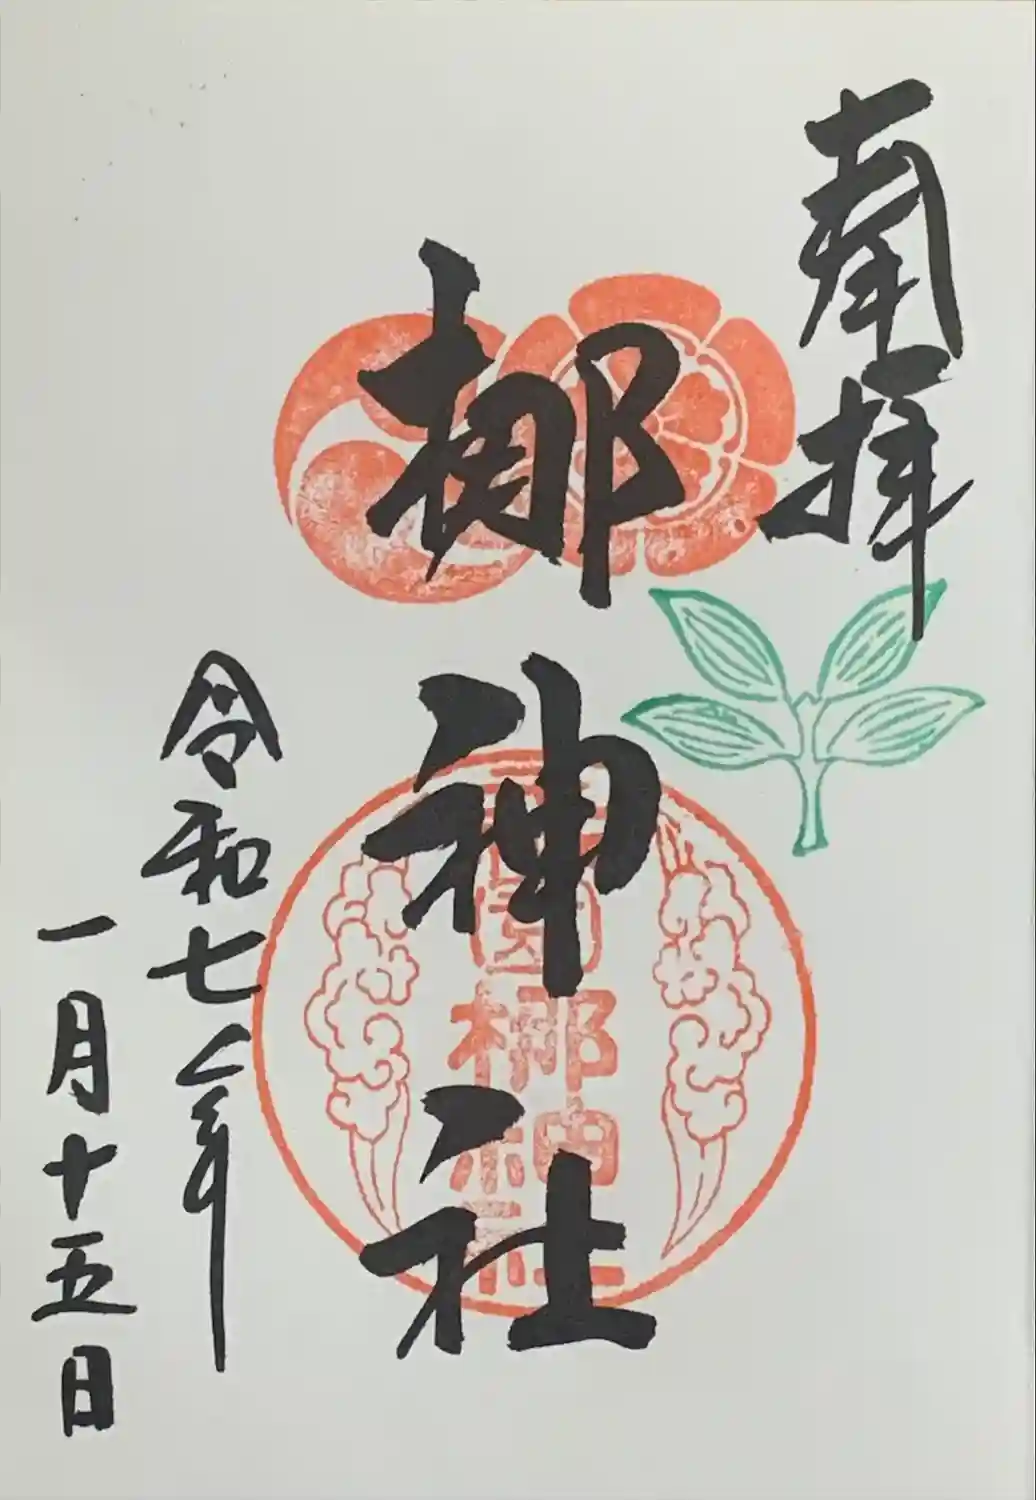 奉拝
梛神社
令和七年
一月十五日
園梛神社